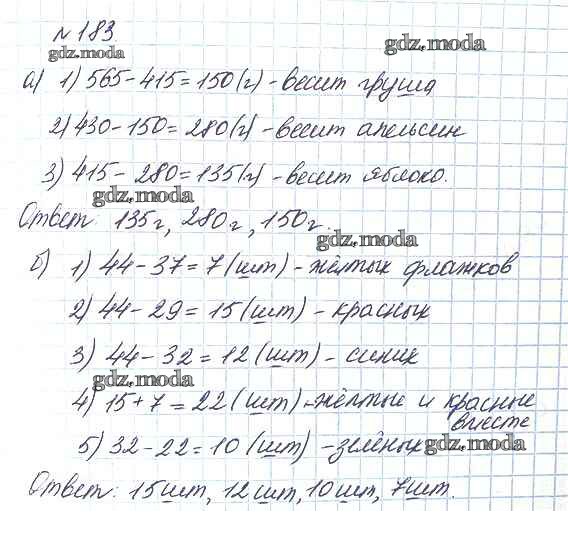 № 183
gdz.moda
gdz.moda
а) 1) 565 - 415 = 150 (г) - весит груша
2) 430 - 150 = 280 (г) - весит апельсин
3) 415 - 280 = 135 (г) - весит яблоко.
gdz.moda
Ответ: 135 г, 280 г, 150 г.
gdz.moda
б) 1) 44 - 37 = 7 (шт) - жёлтых флажков
2) 44 - 29 = 15 (шт) - красных
3) 44 - 32 = 12 (шт) - синих
gdz.moda
4) 15 + 7 = 22 (шт) - жёлтые и красные
вместе
5) 32 - 22 = 10 (шт) - зелёных
gdz.moda
Ответ: 15 шт, 12 шт, 10 шт, 7 шт.